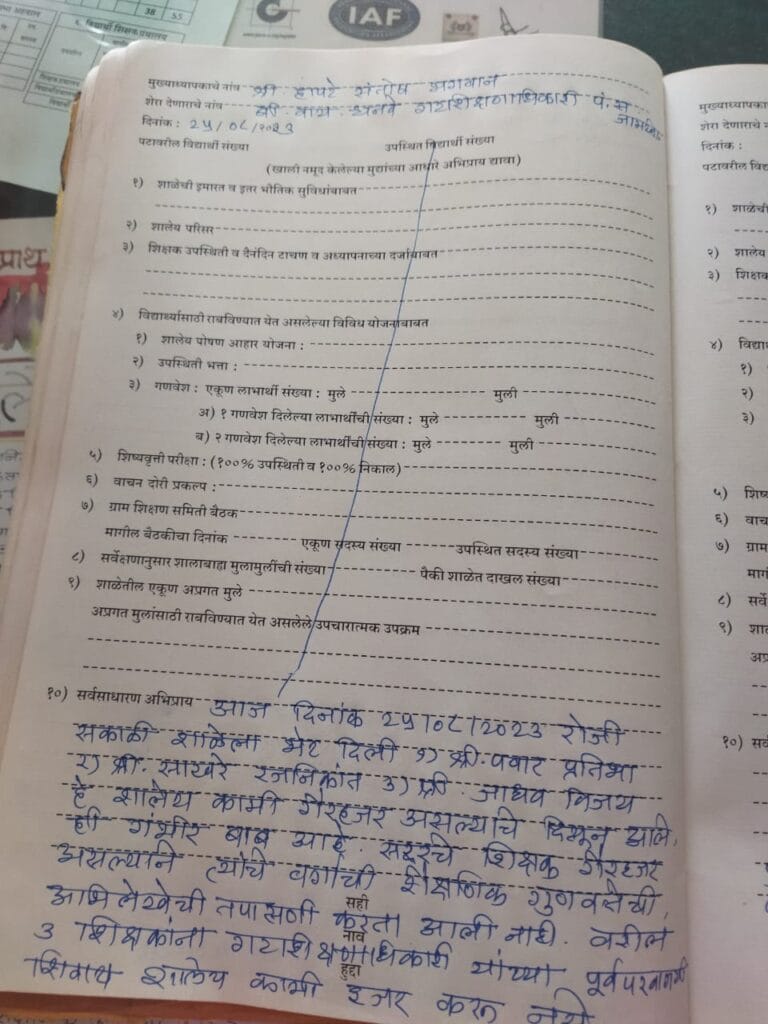 38 55
६. विद्यार्थी शिक्षक प्रमाण
IAF
मुख्याध्यापकाचे नांव श्री हापटे संतोष भगवान
शेरा देणाराचे नांव श्री. गटशिक्षणाधिकारी पं.स
दिनांक : 25/08/2023
पटावरील विद्यार्थी संख्या उपस्थित विद्यार्थी संख्या
(खाली नमूद केलेल्या मुद्यांच्या आधारे अभिप्राय द्यावा)
१) शाळेची इमारत व इतर भौतिक सुविधांबाबत
२) शालेय परिसर
३) शिक्षक उपस्थिती व दैनंदिन टाचण व अध्यापनाच्या दर्जाबाबत
४) विद्यार्थ्यासाठी राबविण्यात येत असलेल्या विविध योजनाबाबत
१) शालेय पोषण आहार योजना :
२) उपस्थिती भत्ता :
३) गणवेश : एकूण लाभार्थी संख्या : मुले मुली
अ) १ गणवेश दिलेल्या लाभार्थीची संख्या : मुले मुली
ब) २ गणवेश दिलेल्या लाभार्थीची संख्या : मुले मुली
५) शिष्यवृत्ती परीक्षा : (१००% उपस्थिती व १००% निकाल)
६) वाचन दोरी प्रकल्प :
७) ग्राम शिक्षण समिती बैठक
मागील बैठकीचा दिनांक एकूण सदस्य संख्या उपस्थित सदस्य संख्या
८) सर्वेक्षणानुसार शालाबाह्य मुलामुलींची संख्या पैकी शाळेत दाखल संख्या
९) शाळेतील एकूण अप्रगत मुले
अप्रगत मुलांसाठी राबविण्यात येत असलेले उपचारात्मक उपक्रम
१०) सर्वसाधारण अभिप्राय आज दिनांक 25/08/2023 रोजी
सकाळी शाळेला भेट दिली १) श्री. पवार प्रतिभा
२) श्री. साखरे रजनिकांत 3) श्री. जाधव विजय
हे शालेय कामी गैरहजर असल्याचे दिसून आले.
ही गंभीर बाब आहे. सदरचे शिक्षक गैरहजर
असल्याने त्यांचे वर्गाची शैक्षणिक गुणवत्तेची,
अभिलेखेची तपासणी करता आली नाही. वरील
सही
3 शिक्षकांना गटशिक्षणाधिकारी यांच्या पूर्वपरवानगी
नांव
शिवाय शालेय कामी हजर करू नये
हुद्दा
मुख्याध्यापका
शेरा देणाराचे
दिनांक :
पटावरील विद्य
१) शाळेची
२) शालेय
३) शिक्षक
४) विद्या
१)
२)
३)
५) शिष्य
६) वाच
७) ग्राम
माग
८) सर्वे
९) शाळ
अप्र
१०) सर्व